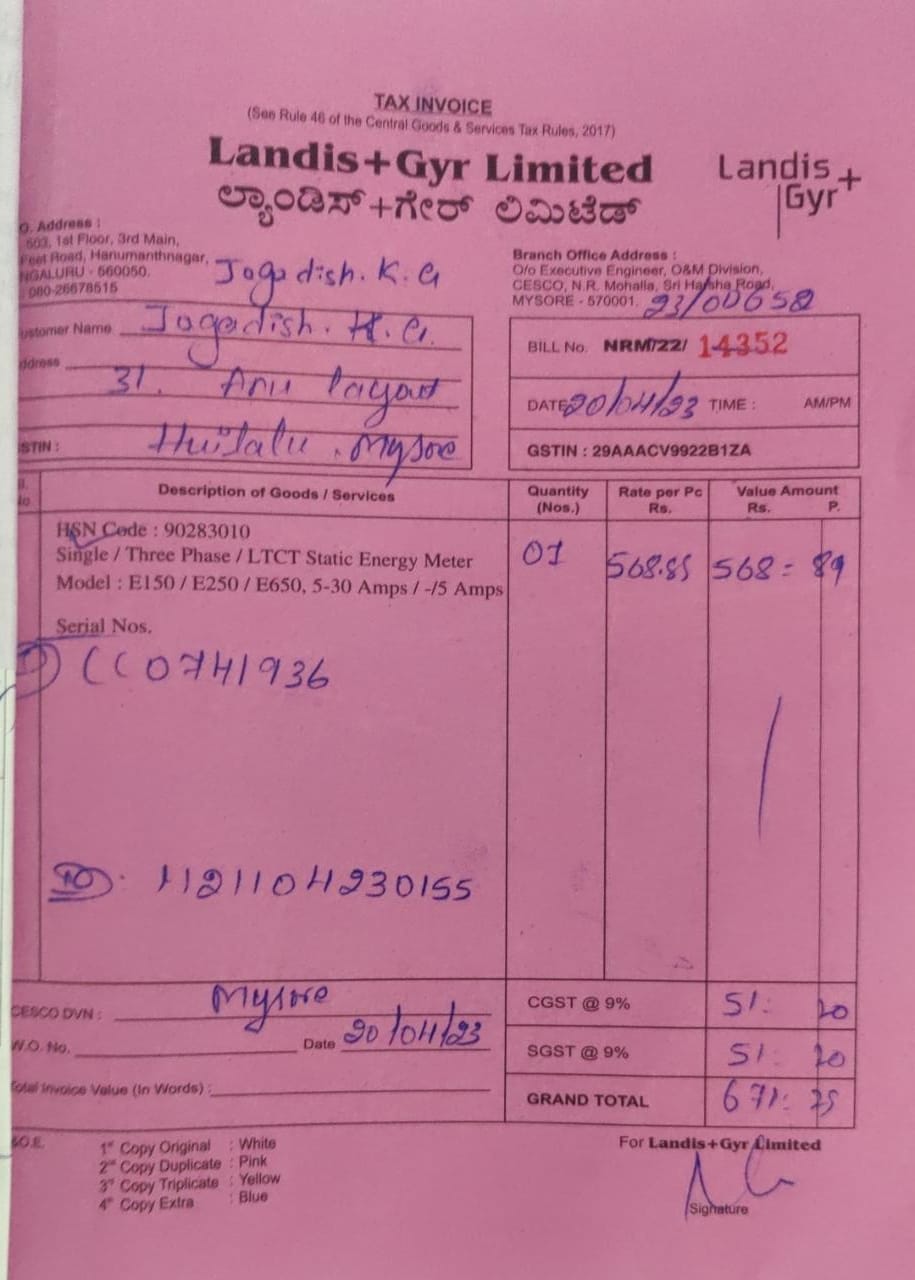 TAX INVOICE
(See Rule 46 of the Central Goods & Services Tax Rules, 2017)
Landis+Gyr Limited
ಲ್ಯಾಂಡಿಸ್+ಗೇರ್ ಲಿಮಿಟೆಡ್
Landis+
Gyr
O. Address :
503, 1st Floor, 3rd Main,
Feet Road, Hanumanthnagar,
NGALURU - 560050.
: 080-26678515
Jogadish. K. G
Branch Office Address :
O/o Executive Engineer, O&M Division,
CESCO, N.R. Mohalla, Sri Harsha Road,
MYSORE - 570001.
23/00658
ustomer Name Jogadish. K. G.
ddress
31. Anu layout
STIN : Huilalu . Mysore
BILL No. NRM/22/ 14352
DATE 20/04/23 TIME : AM/PM
GSTIN : 29AAACV9922B1ZA
Description of Goods / Services Quantity (Nos.) Rate per Pc Rs. Value Amount Rs. P.
HSN Code : 90283010
Single / Three Phase / LTCT Static Energy Meter
Model : E150 / E250 / E650, 5-30 Amps / -/5 Amps
01 568.85 568 = 89
Serial Nos.
CC0741936
1121104230155
CESCO DVN : Mysore
W.O. No. Date 20/04/23
Total Invoice Value (In Words) :
CGST @ 9% 51: 20
SGST @ 9% 51: 20
GRAND TOTAL 671: 25
&O.E.
1st Copy Original : White
2nd Copy Duplicate : Pink
3rd Copy Triplicate : Yellow
4th Copy Extra : Blue
For Landis+Gyr Limited
Signature